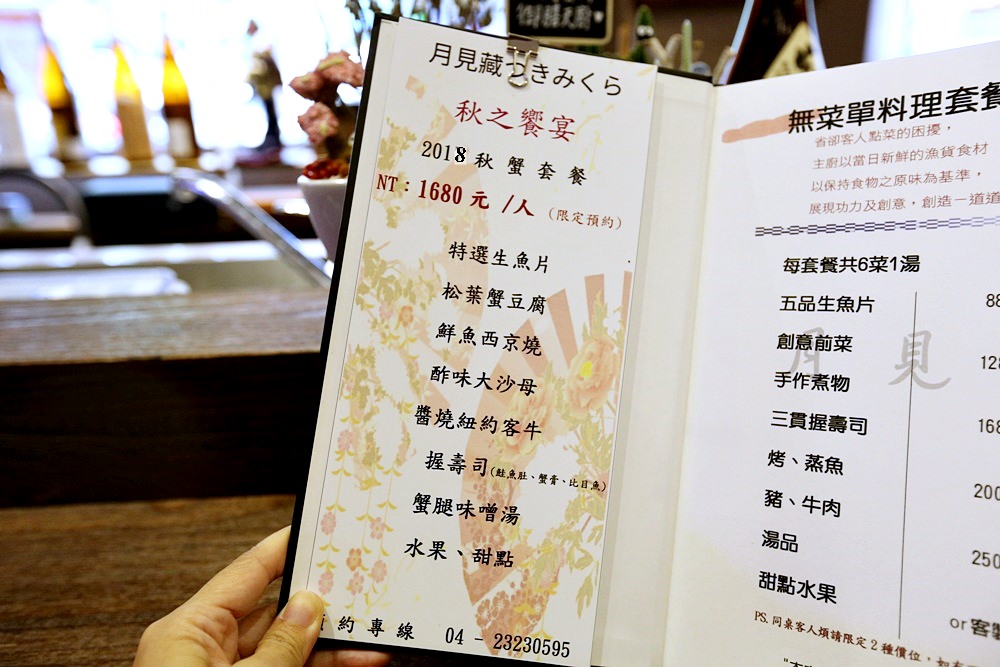 月見藏つきみくら
秋之饗宴
2018秋蟹套餐
NT：1680元 /人 (限定預約)
特選生魚片
松葉蟹豆腐
鮮魚西京燒
酢味大沙母
醬燒紐約客牛
握壽司(鮭魚肚、蟹膏、比目魚)
蟹腿味噌湯
水果、甜點
約專線 04 - 23230595
無菜單料理套餐
省卻客人點菜的困擾，
主廚以當日新鮮的漁貨食材
以保持食物之原味為基準，
展現功力及創意，創造一道道
每套餐共6菜1湯
五品生魚片 88
創意前菜
月見
手作煮物 128
三貫握壽司 168
烤、蒸魚
豬、牛肉 200
湯品 250
甜點水果 or客
PS.同桌客人煩請限定2種價位，如